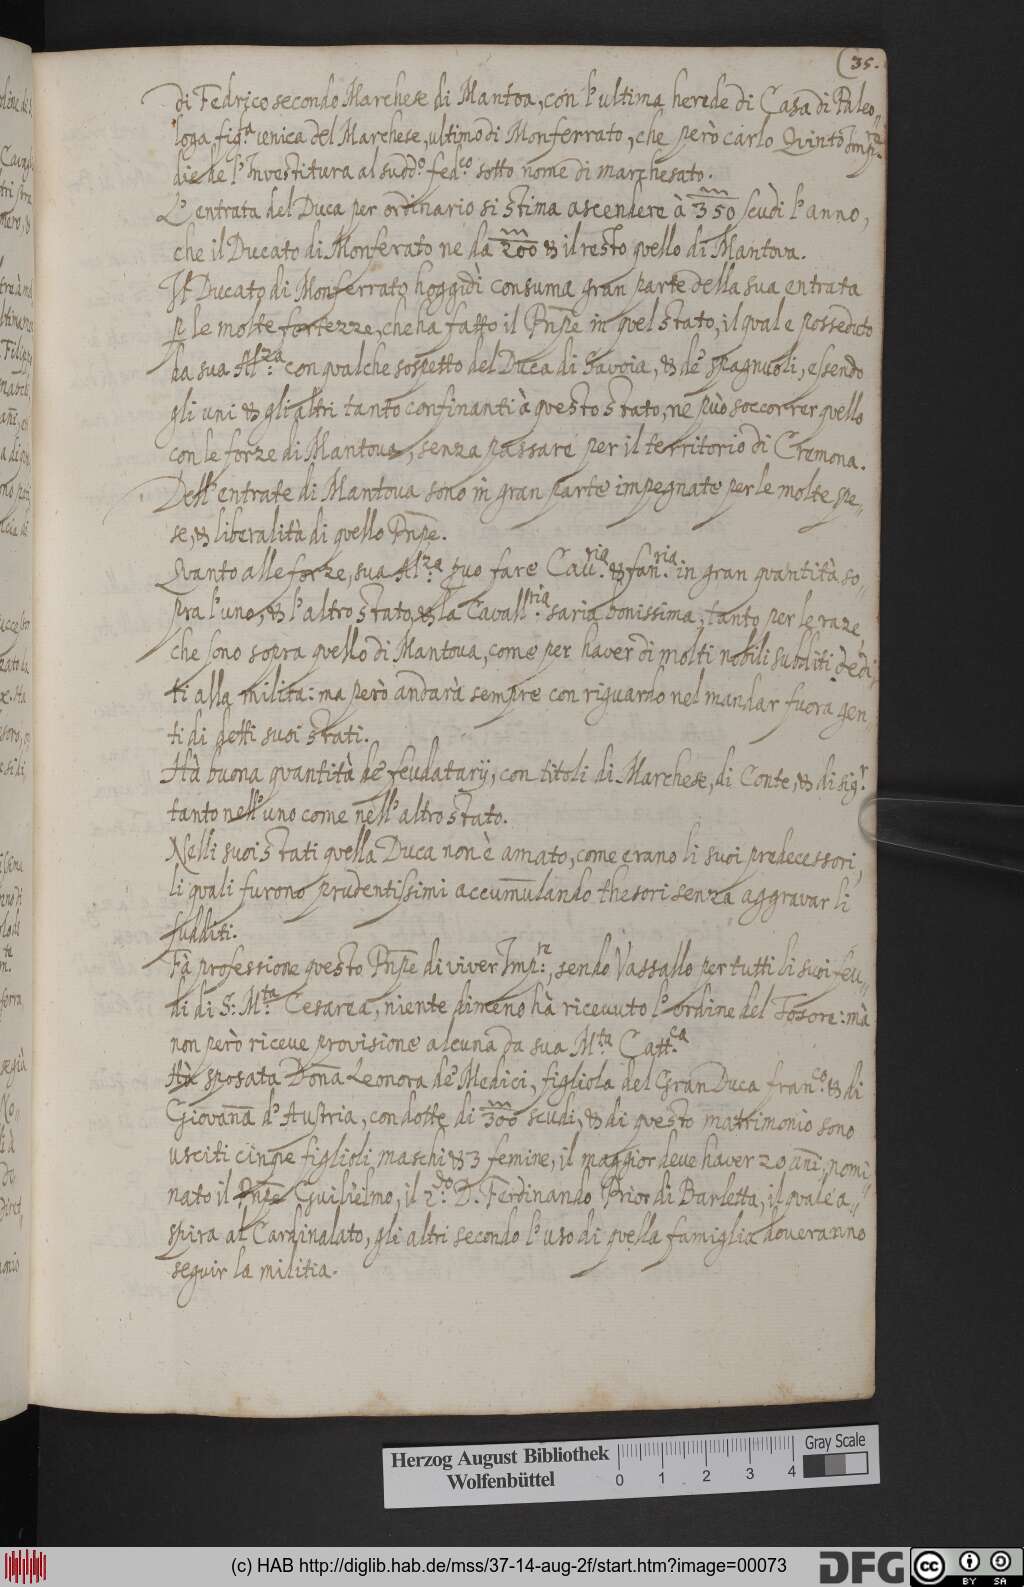 35.
di Fedrico secondo Marchese di Mantoa, con l'ultima herede di Casa di Paleo„
loga, fig.ª venica del Marchese, ultimo di Monferrato, che però carlo Quinto Imp.re
diede l'Investitura al sudd.º fed.co sotto nome di marchesato.
L'entrata del Duca per ordinario si stima ascendere à 350 scudi l'anno,
che il Ducato di Monferato ne da 200 & il resto quello di Mantova.
Il Ducato di Monferrato hoggidì consuma gran parte della sua entrata
p le molte fortezze, che ha fatto il Pnpe in quel stato, il qual e posseduto
da sua Al.za con qualche sospetto del Duca di Savoia, & de' spagnuoli, essendo
gli uni & gli altri tanto confinanti à questo stato, ne può soccorrer quello
con le forze di Mantova, senza passare per il territorio di Cremona.
Dell'entrate di Mantova sono in gran parte impegnate per le molte spe„
se, & liberalità di quello Pnpe.
Quanto alle forze, sua Al.za puo fare Cau.ria & fan.ria in gran quantità so„
pra l'uno, & l'altro stato, & la Cavall.ria saria bonissima, tanto per le raze
che sono sopra quello di Mantova, come per haver di molti nobili subditi dedi„
ti alla milita: ma però andarà sempre con riguardo nel mandar fuora gen„
ti di detti suoi stati.
Hà buona quantità de' feudatarij, con titoli di Marchese, di Conte, & di sig.r
tanto nell'uno come nell'altro stato.
Nelli suoi stati quella Duca non è amato, come erano li suoi predecessori,
li quali furono prudentissimi accumulando thesori senza aggravar li
sudditi.
Fà professione questo Pnpe di viver Imp.re, sendo Vassallo per tutti li suoi feu„
di di S: M.ta Cesarea, niente dimeno hà ricevuto l'ordine del Tosore: mà
non però riceve provisione alcuna da sua M.ta Catt.ca
Hà sposata Dona Leonora de' Medici, figliola del Gran Duca fran.co & di
Giovana d'Austria, con dotte di 300 scudi, & di questo matrimonio sono
usciti cinqe figlioli maschi & 3 femine, il maggior deve haver 20 ani, nomi„
nato il Pnpe Guilielmo, il 2.do D. Ferdinando Prior di Barletta, il quale a„
spira al Cardinalato, gli altri secondo l'uso di quella famiglia doveranno
seguir la militia.
Herzog August Bibliothek
Wolfenbüttel
0 1 2 3 4
Gray Scale
(c) HAB http://diglib.hab.de/mss/37-14-aug-2f/start.htm?image=00073
DFG
cc BY SA